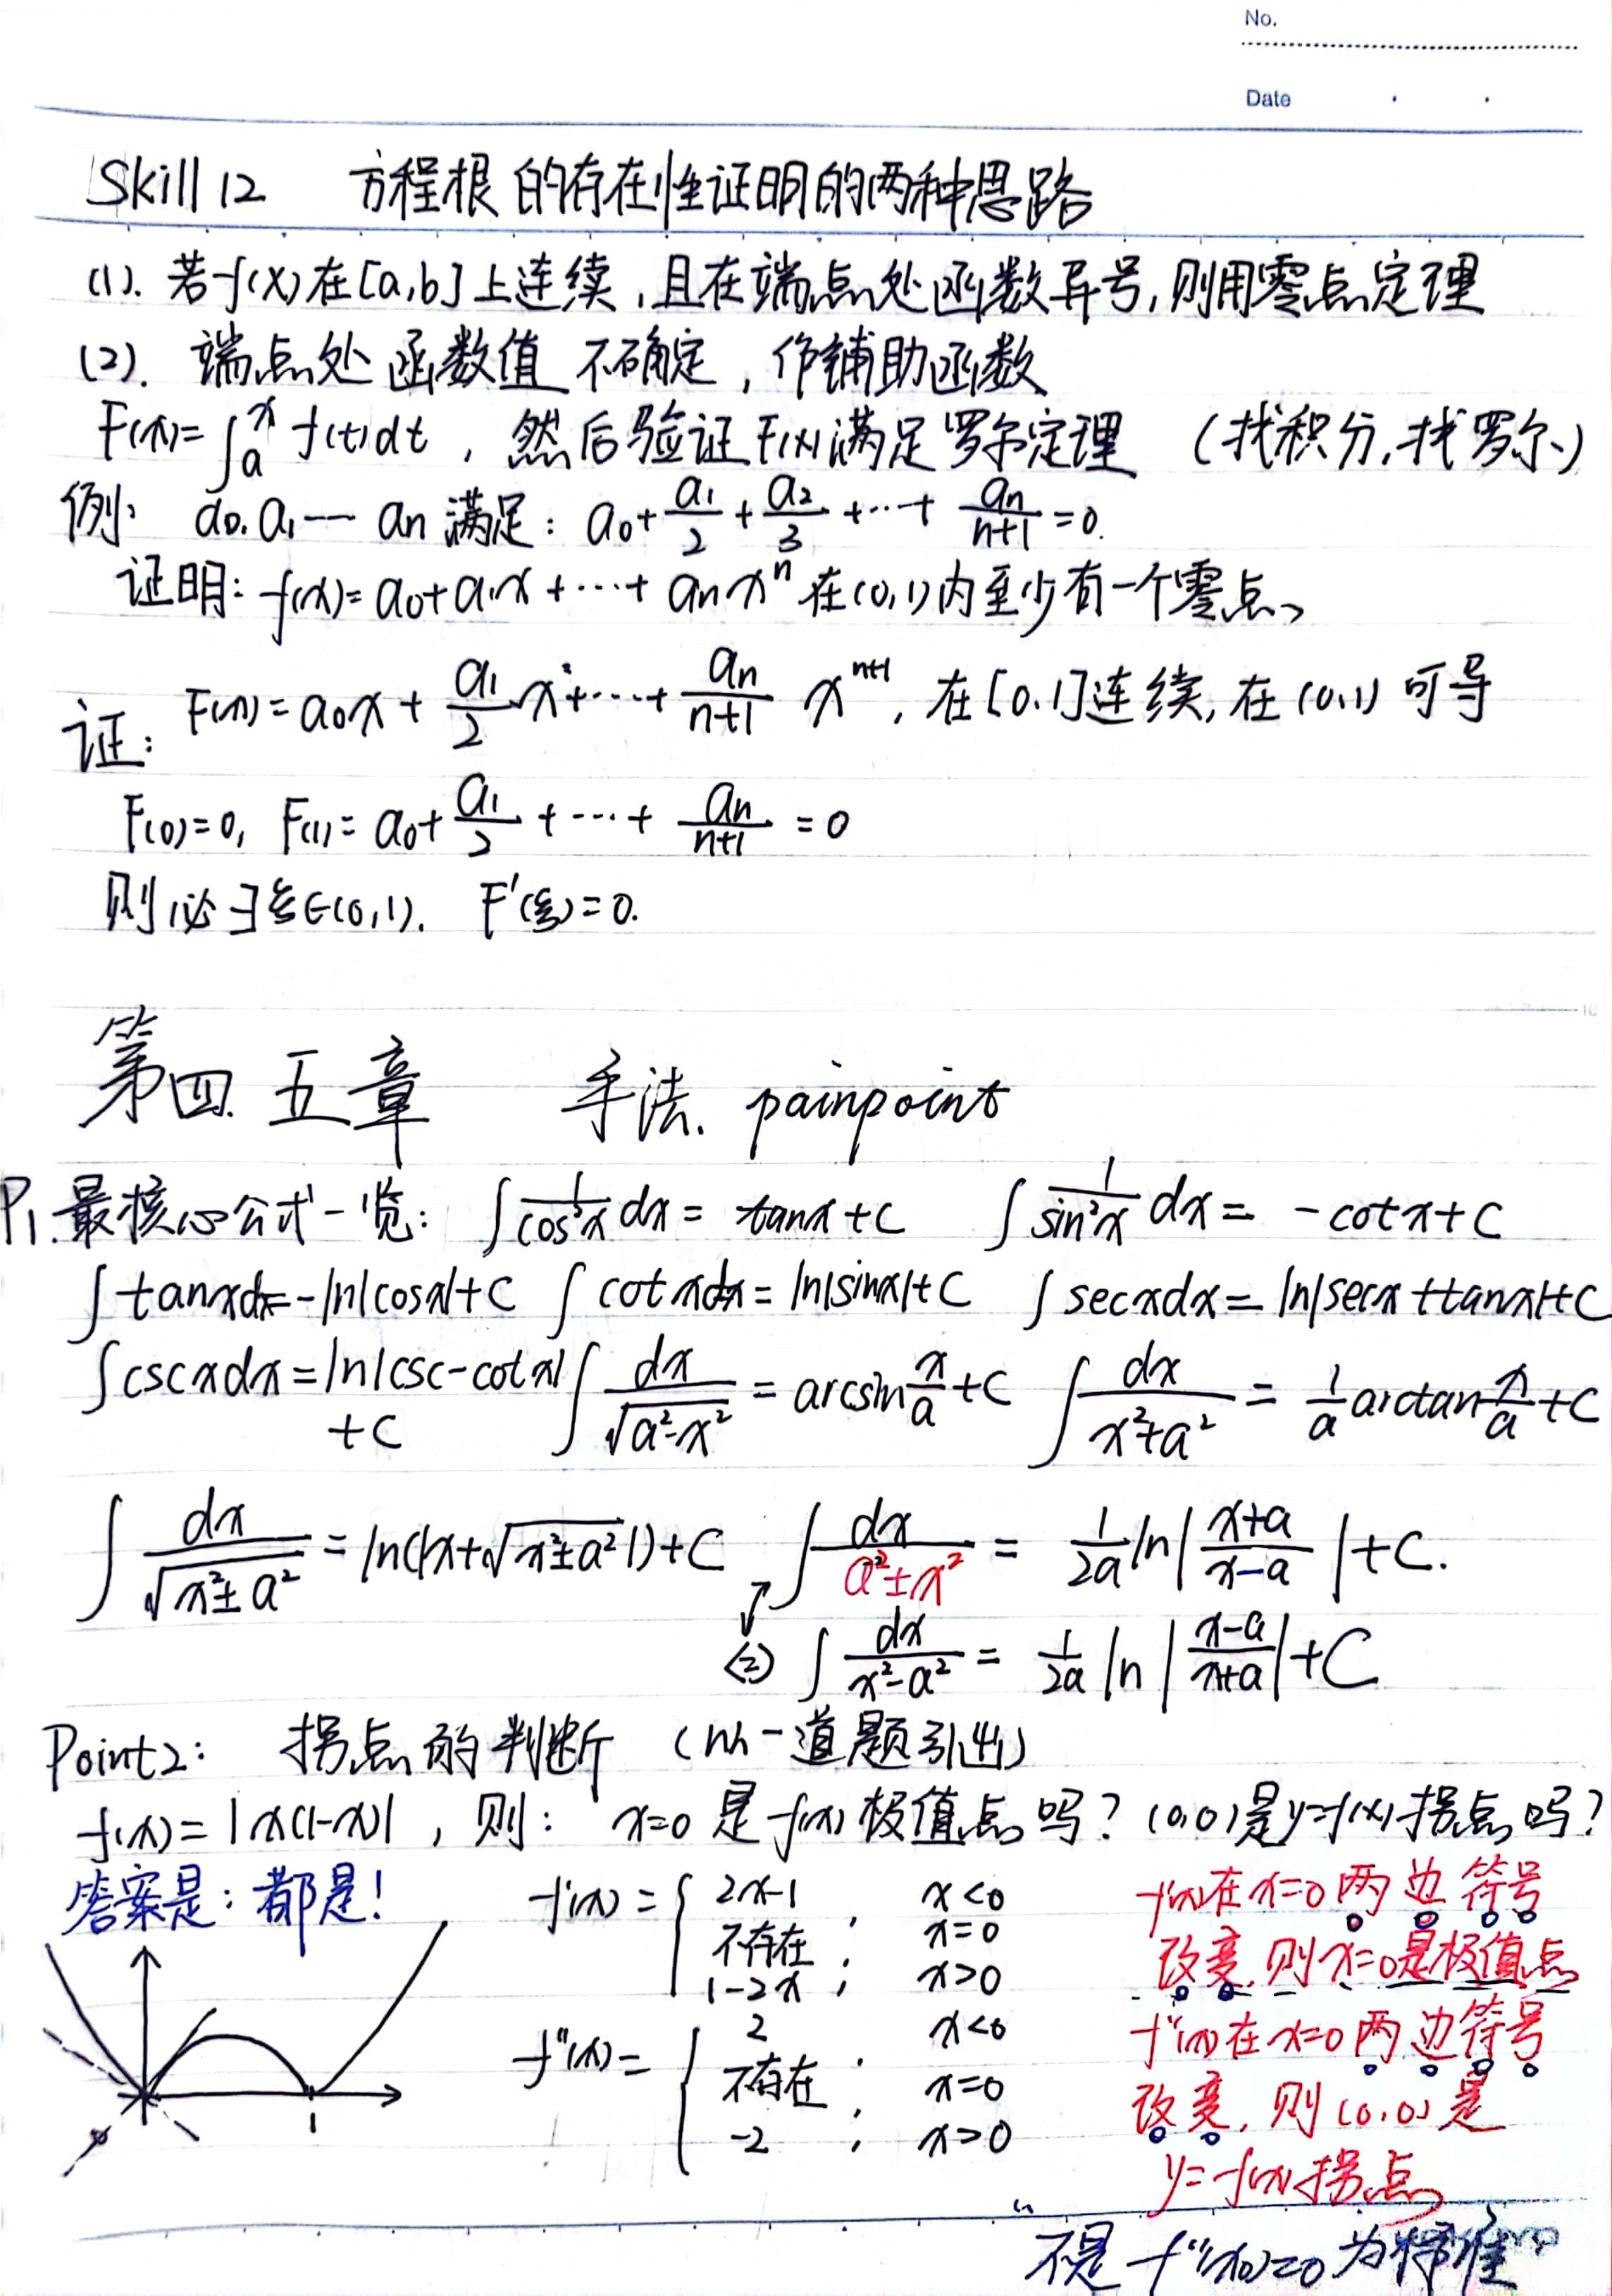 No.
Date
Skill 12 方程根的存在性证明的两种思路
(1). 若f(x)在[a,b]上连续,且在端点处函数异号,则用零点定理
(2). 端点处函数值不确定,作辅助函数
F(x)=∫ₐˣ f(t)dt , 然后验证F(x)满足罗尔定理 (找积分,找罗尔)
例: a₀.a₁— aₙ 满足: a₀+a₁/2+a₂/3+…+aₙ/(n+1)=0.
证明: f(x)=a₀+a₁x+…+aₙxⁿ 在(0,1)内至少有一个零点、
证: F(x)=a₀x+a₁/2 x²+…+aₙ/(n+1) xⁿ⁺¹, 在[0.1]连续, 在(0,1)可导
F(0)=0, F(1)=a₀+a₁/2+…+aₙ/(n+1)=0
则必∃ξ∈(0,1). F′(ξ)=0.
第四. 五章 手法. painpoint
P₁.最核心公式一览: ∫1/cos²x dx = tanx+C ∫1/sin²x dx = -cotx+C
∫tanxdx=-ln|cosx|+C ∫cotxdx=ln|sinx|+C ∫secxdx=ln|secx+tanx|+C
∫cscxdx=ln|csc-cotx|+C ∫dx/√(a²-x²)=arcsin x/a+C ∫dx/(x²+a²)=1/a arctan x/a+C
∫dx/√(x²±a²)=ln(|x+√(x²±a²)|)+C ∫dx/(a²±x²)=1/2a ln|(x+a)/(x-a)|+C.
⇔ ∫dx/(x²-a²)=1/2a ln|(x-a)/(x+a)|+C
Point2: 拐点的判断 (从一道题引出)
f(x)=|x(1-x)| , 则: x=0是f(x)极值点吗? (0,0)是y=f(x)拐点吗?
答案是: 都是!
f′(x)= { 2x-1 , x<0
不存在 ; x=0
1-2x ; x>0
f″(x)= { 2 x<0
不存在 ; x=0
-2 ; x>0
1
f′(x)在x=0两边符号
改变, 则x=0是极值点
f″(x)在x=0两边符号
改变, 则(0,0)是
y=f(x)拐点
不是f″(x₀)=0为标准